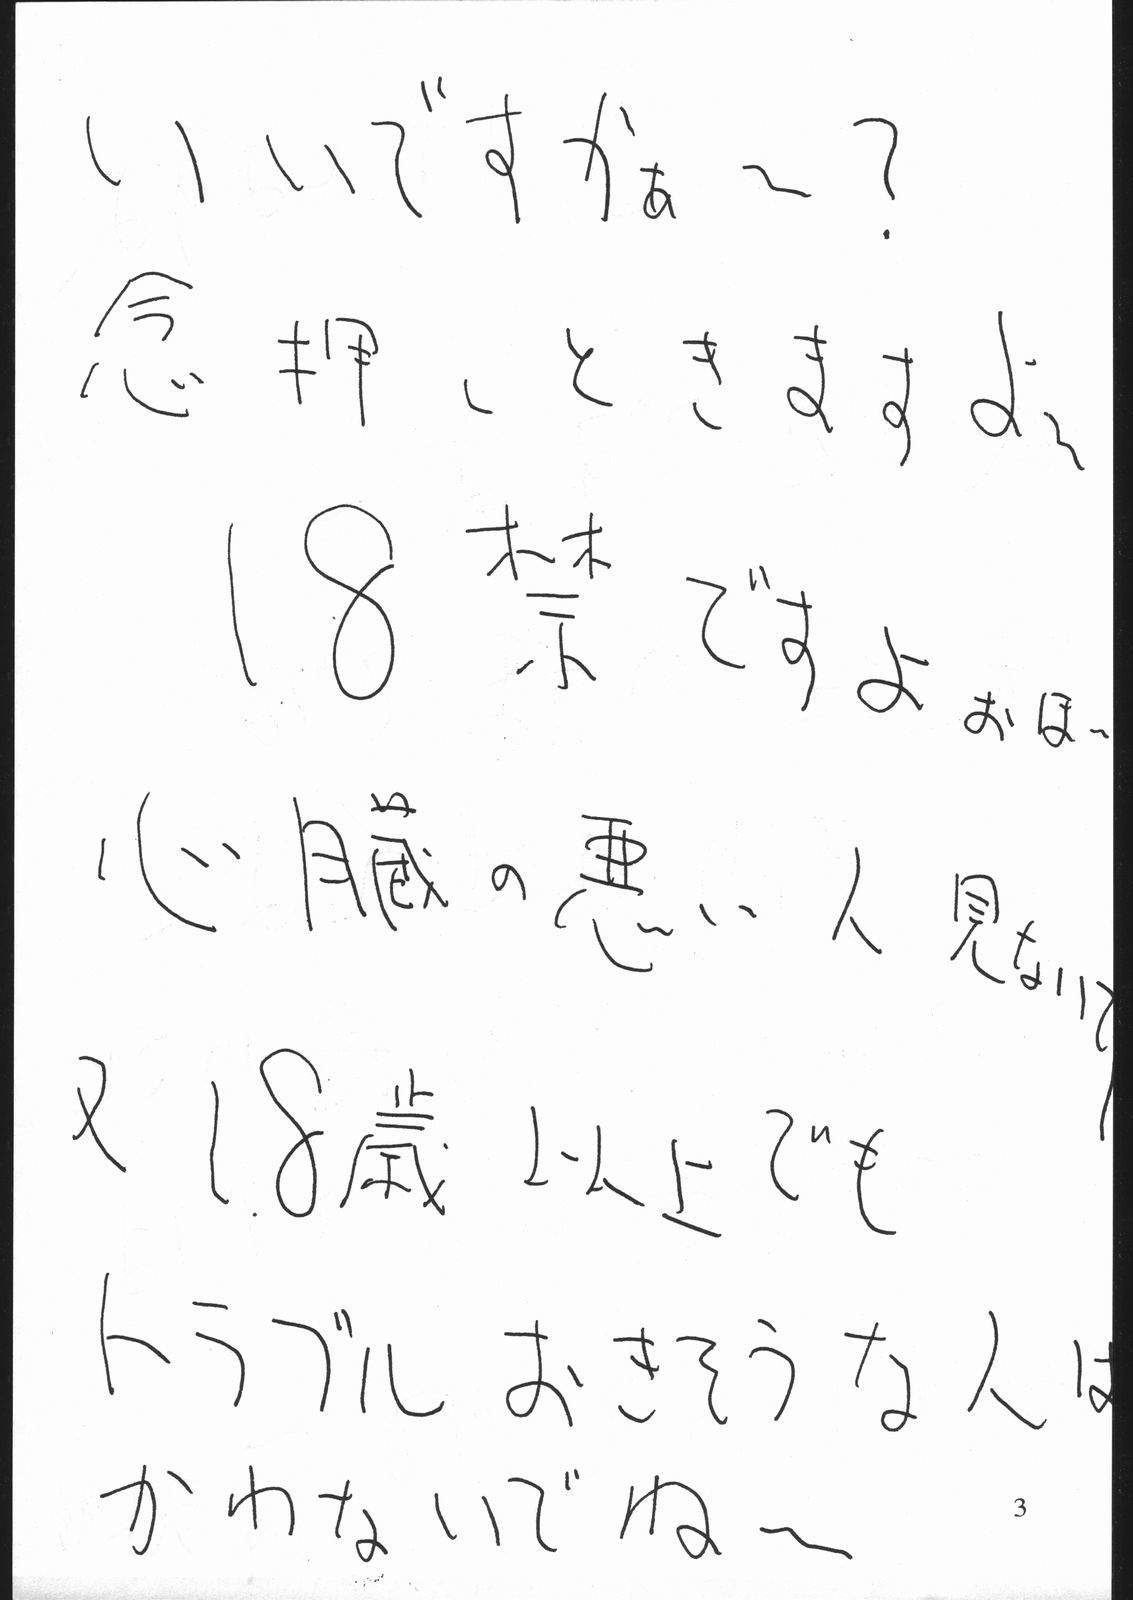 いいですかぁ～?
念押しときますよ～
18禁ですよ おほ～
心臓の悪い人見ないで
又18歳以上でも
トラブルおきそうな人は
かわないでね～
3